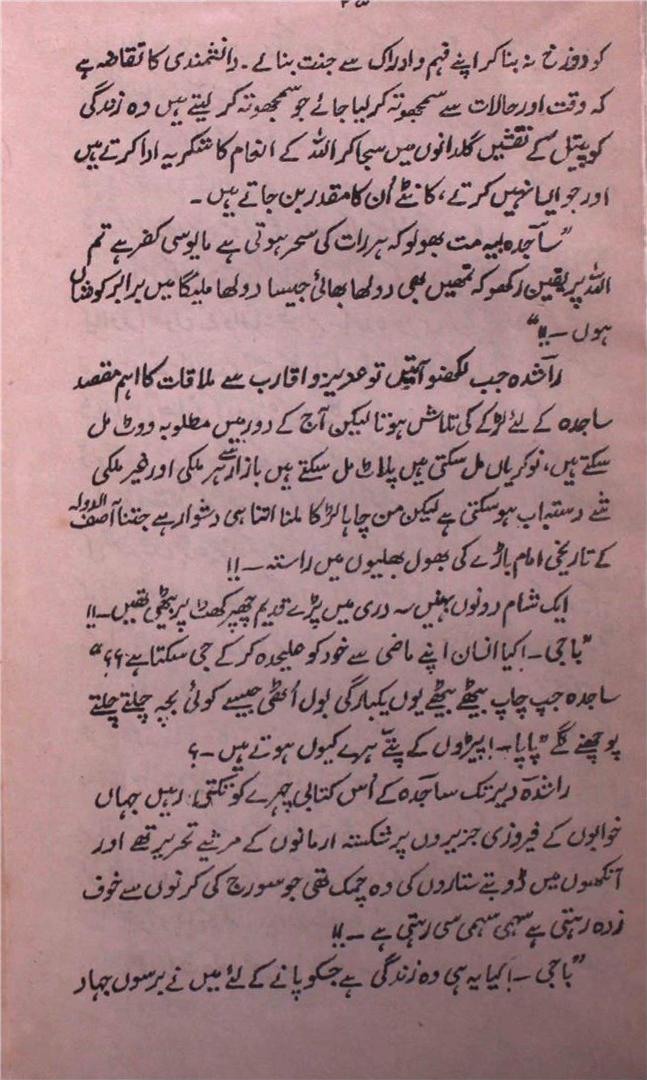 کو دوزخ نہ بنا کر اپنے فہم و ادراک سے جنت بنائے ۔ دانشمندی کا تقاضہ ہے
کہ وقت اور حالات سے سمجھوتہ کر لیا جائے جو سمجھوتہ کر لیتے ہیں وہ زندگی
کو پیتل کے نقشیں گلدانوں میں سجا کر اللہ کے انعام کا شکریہ ادا کرتے ہیں
اور جو ایسا نہیں کرتے ، کانٹے اُن کا مقدر بن جاتے ہیں ۔
”ساجدہ یہ مت بھولو کہ ہر رات کی سحر ہوتی ہے مایوسی کفر ہے تم
اللہ پر یقین رکھو کہ تمھیں بھی دولھا بھائی جیسا دولھا ملیگا میں برابر کوشاں
ہوں ۔!!“
راشدہ جب لکھنؤ آتیں تو عزیز و اقارب سے ملاقات کا اہم مقصد
ساجدہ کے لئے لڑکے کی تلاش ہوتا لیکن آج کے دور میں مطلوبہ ووٹ مل
سکتے ہیں، نوکریاں مل سکتی ہیں پلاٹ مل سکتے ہیں بازار سے ہر ملکی اور غیر ملکی
شے دستیاب ہو سکتی ہے لیکن من چاہا لڑکا ملنا اتنا ہی دشوار ہے جتنا آصف الدولہ
کے تاریخی امام باڑے کی بھول بھلیوں میں راستہ ۔!!
ایک شام دونوں بہنیں سہ دری میں پڑے قدیم چھپر کھٹ پر بیٹھی تھیں ۔!!
”باجی ۔! کیا انسان اپنے ماضی سے خود کو علیحدہ کر کے جی سکتا ہے ؟؟“
ساجدہ چپ چاپ بیٹھے بیٹھے یوں یکبارگی بول اُٹھی جیسے کوئی بچہ چلتے چلتے
پوچھنے لگے ”پاپا ۔! پیڑوں کے پتے ہرے کیوں ہوتے ہیں ۔؟
راشدہ دیر تک ساجدہ کے اُس کتابی چہرے کو تکتی رہیں جہاں
خوابوں کے فیروزی جزیروں پر شکستہ ارمانوں کے مرثیے تحریر تھے اور
آنکھوں میں ڈوبتے ستاروں کی وہ چمک تھی جو سورج کی کرنوں سے خوف
زدہ رہتی ہے سہمی سہمی سی رہتی ہے ۔!!
”باجی ۔! کیا یہ ہی وہ زندگی ہے جسکو پانے کے لئے میں نے برسوں جہاد